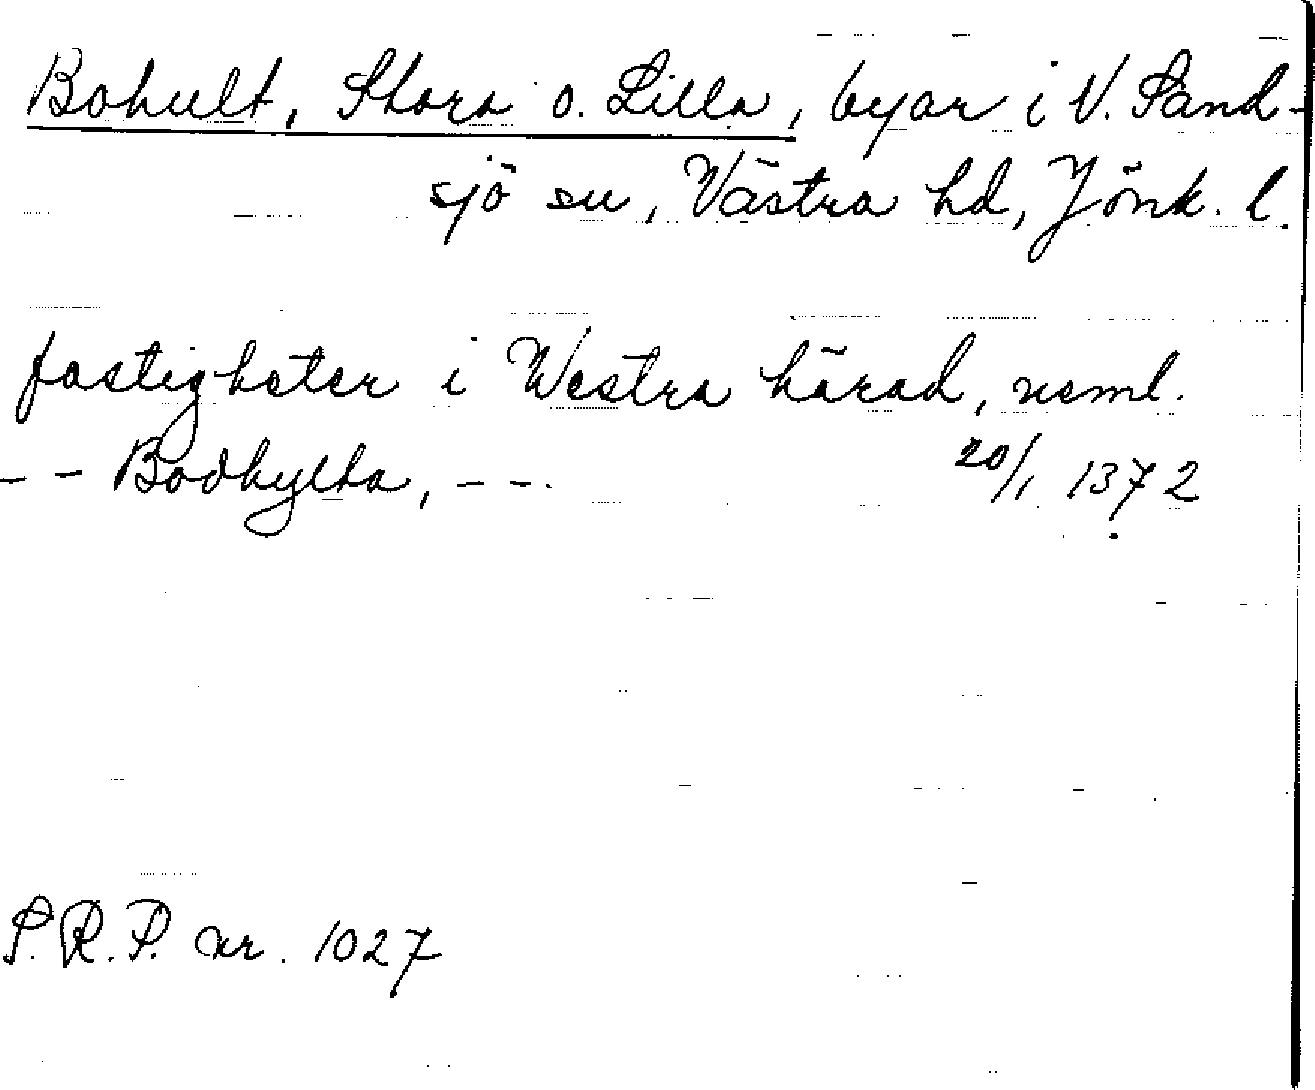 Bohult, Stora o. Lilla, byar i N. Sand-
sjö sn, Västra hd, Jönk. l.
fastigheter i Westra härad, neml.
- - Bodhylta, - - -  20/1 1372
S.R.P. nr. 1027